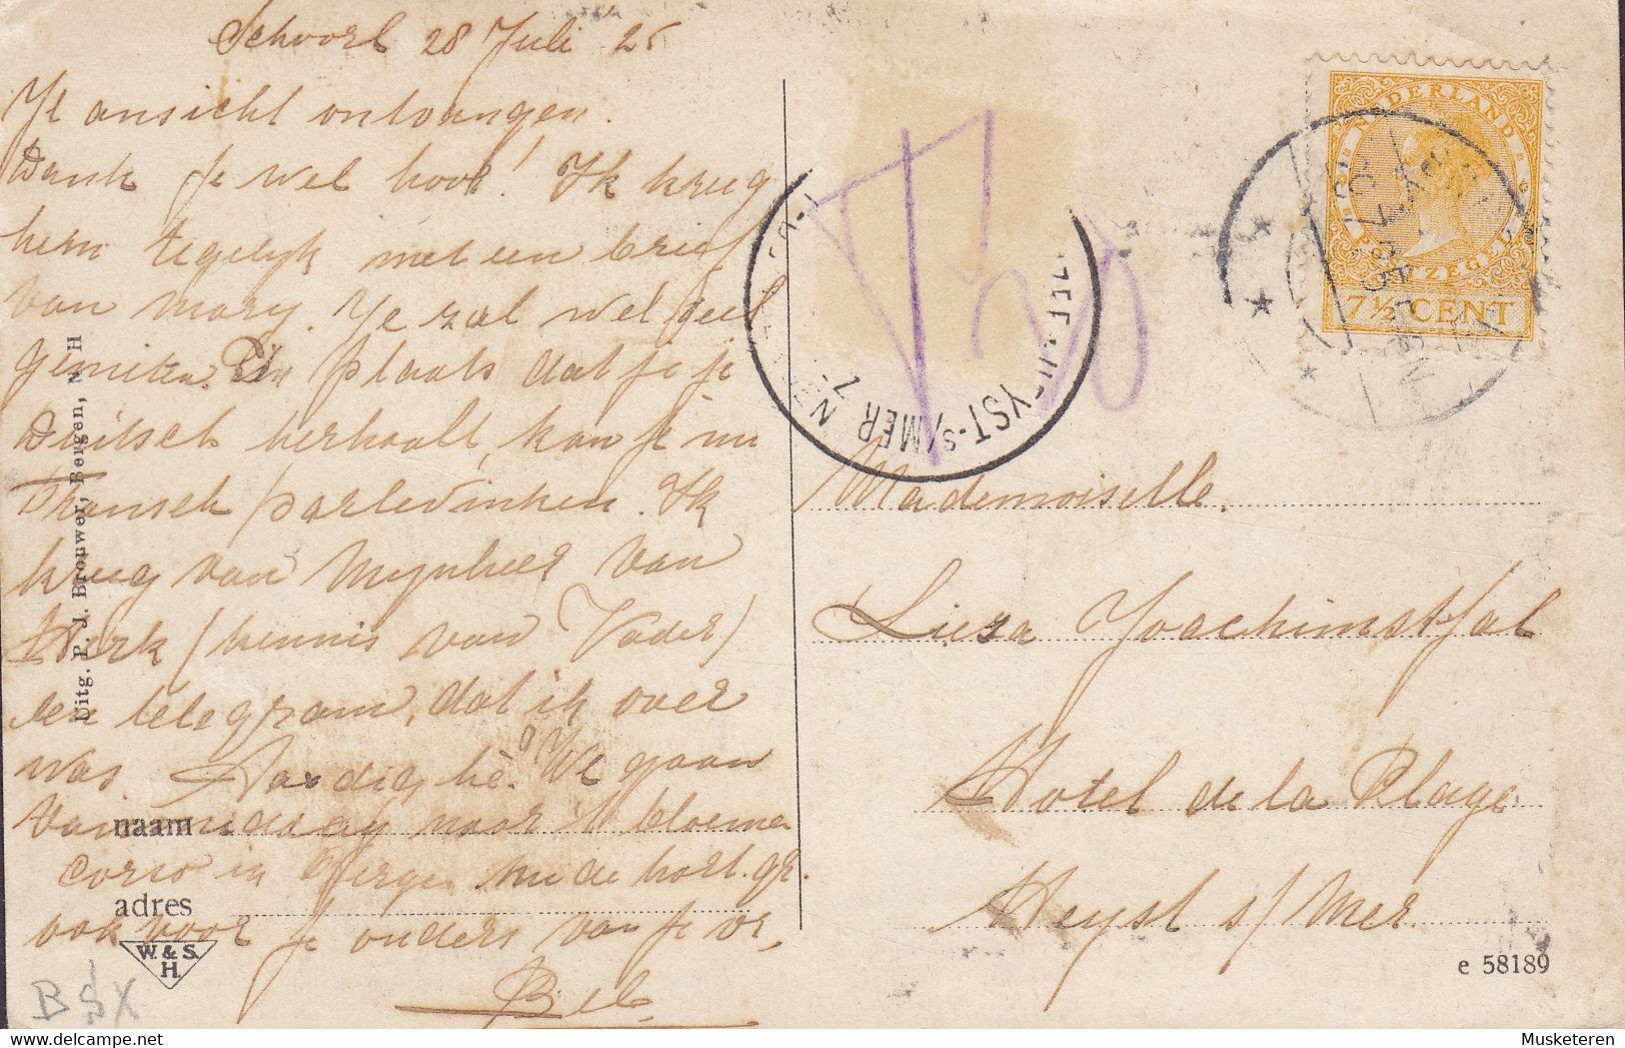 Schoorl 28 Juli '25
Je ansicht ontvangen.
Dank je wel hoor! Ik kreeg
hem tegelijk met een brief
van Mary. Je zal wel veel
genieten. In plaats dat je je
Duitsch herhaalt, kan je nu
Fransch parlevinken. Ik
kreeg van Mynheer van
(kennis van Vader)
een telegram, dat ik over
was. Aardig hè? We gaan
vanmiddag naar 't bloemen
corso in Bergen. de hart. gr.
ook voor je ouders van je vr,
Bel.
naam
adres
W. & S.
H.
Uitg. P. J. Brouwer, Bergen, N H
BSX
T
HEYST-S/MER
NEDERLAND
POSTZEGEL
7½ CENT
Mademoiselle.
Lieza Joachimsthal
Hotel de la Plage
Heyst s/Mer.
e 58189
Musketeren